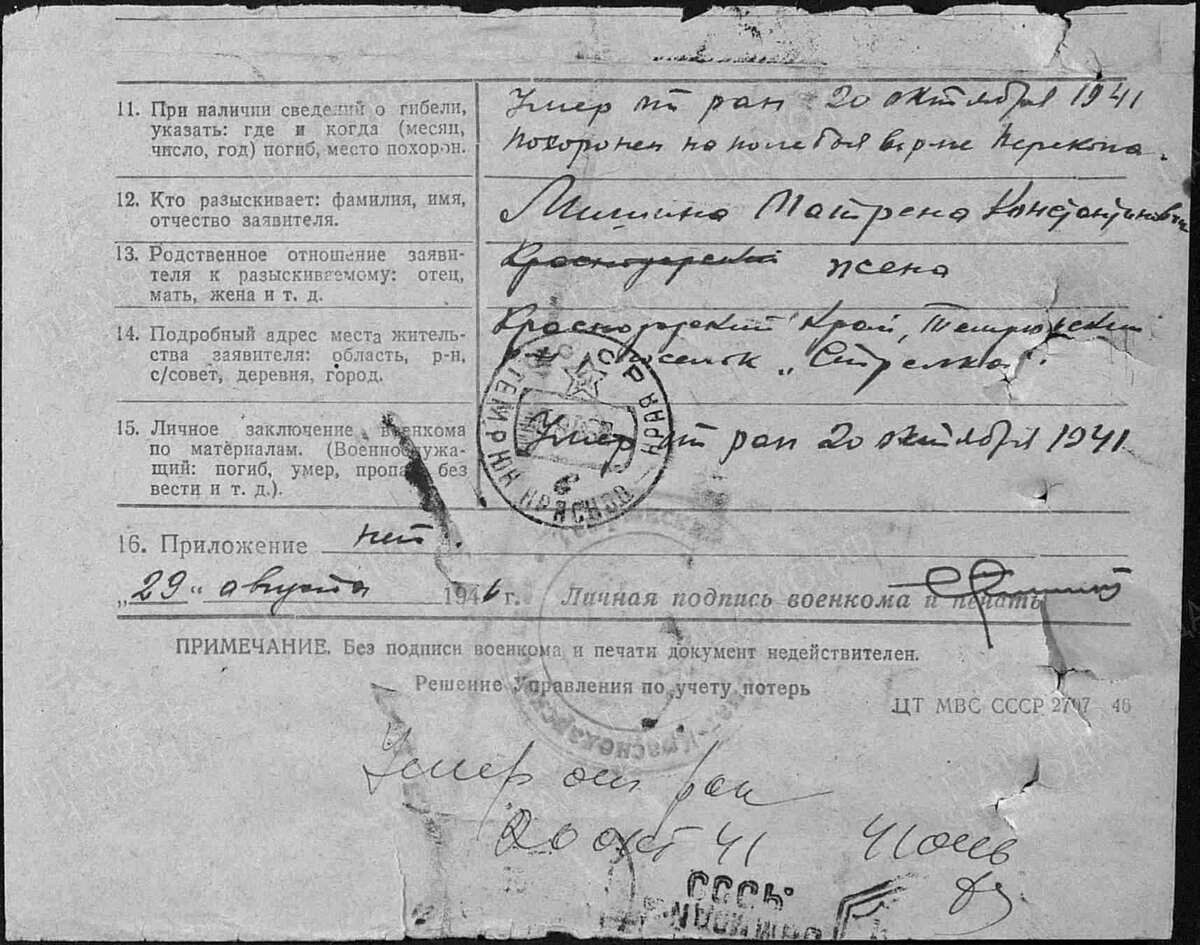 11. При наличии сведений о гибели,
указать: где и когда (месяц,
число, год) погиб, место похорон.
Умер от ран 20 октября 1941
Похоронен на поле боя в рне Перекопа.
12. Кто разыскивает: фамилия, имя,
отчество заявителя.
Мишина Матрена Константиновна
13. Родственное отношение заяви-
теля к разыскиваемому: отец,
мать, жена и т. д.
Краснодарский жена
14. Подробный адрес места житель-
ства заявителя: область, р-н,
с/совет, деревня, город.
Краснодарский Край, Темрюкский
поселок „Стрелка".
15. Личное заключение военкома
по материалам. (Военнослужа-
щий: погиб, умер, пропал без
вести и т. д.).
Умер от ран 20 октября 1941.
СССР
ТЕМРЮК КРАСНОД КРАЯ
16. Приложение нет.
„29" августа 1946 г. Личная подпись военкома и печать
ПРИМЕЧАНИЕ. Без подписи военкома и печати документ недействителен.
Решение Управления по учету потерь
ЦТ МВС СССР 2707 46
Умер от ран
20 окт 41
СССР